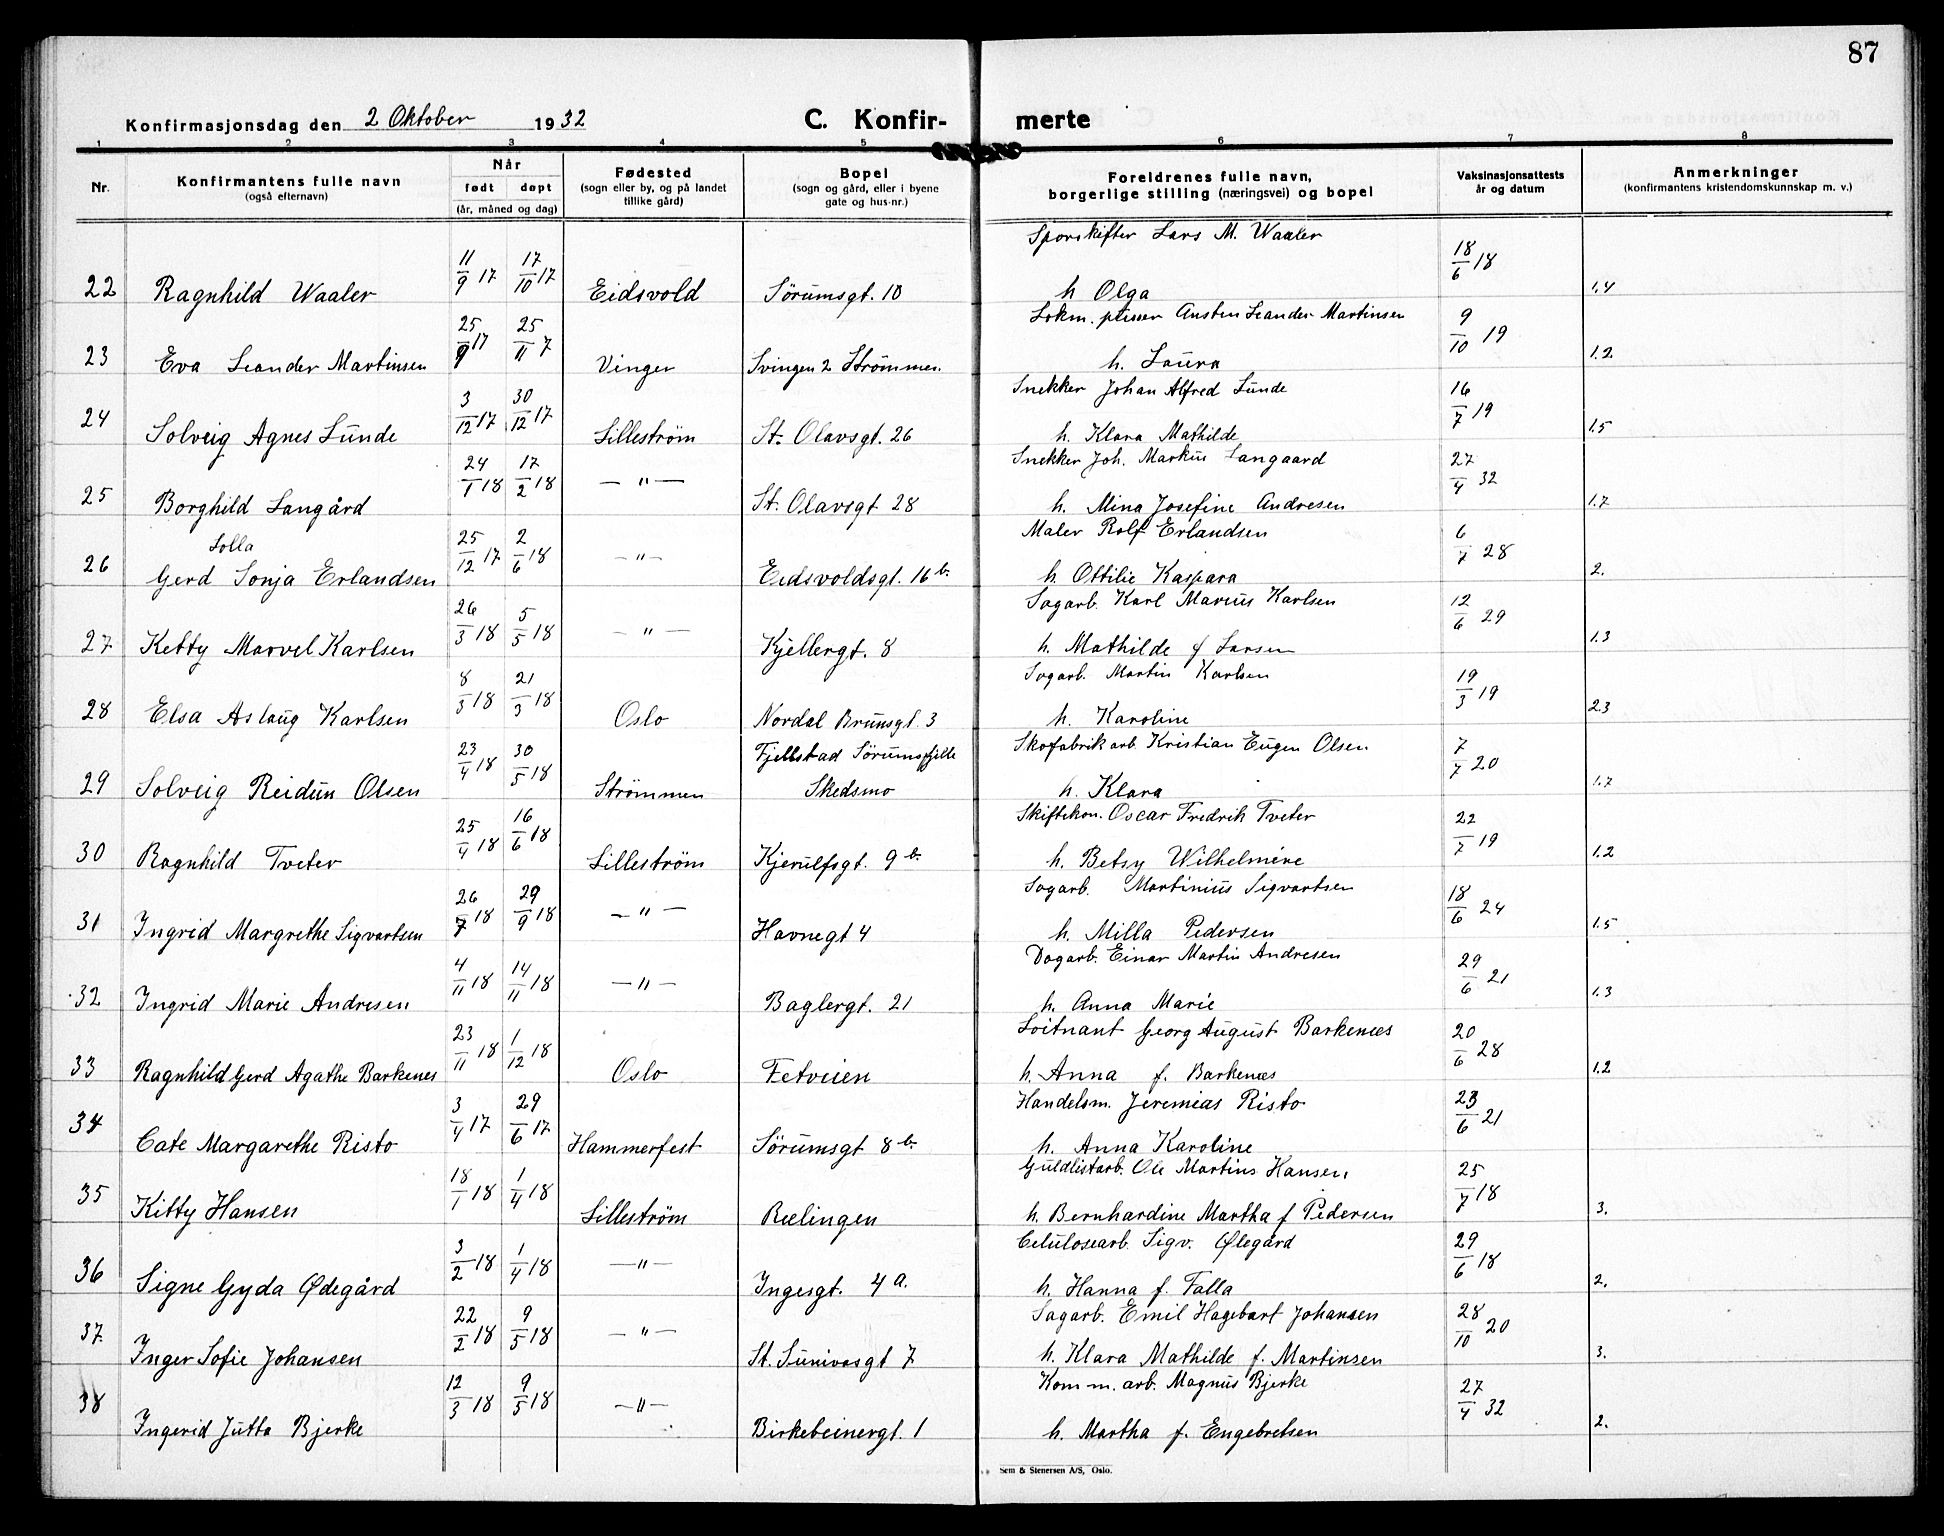 87
Konfirmasjonsdag den 2 Oktober 1932
C. Konfir- merte
1 2 3 4 5 6 7 8
Nr.
Konfirmantens fulle navn
(også efternavn)
Når
født døpt
(år, måned og dag)
Fødested
(sogn eller by, og på landet
tillike gård)
Bopel
(sogn og gård, eller i byene
gate og hus-nr.)
Foreldrenes fulle navn,
borgerlige stilling (næringsvei) og bopel
Vaksinasjonsattests
år og datum
Anmerkninger
(konfirmantens kristendomskunnskap m. v.)
Sporskifter Lars M. Waaler
22 Ragnhild Waaler 11/9 17 17/10 17 Eidsvold Sørumsgt. 10 h Olga 18/6 18 1.4
Lokm. pusser Austen Leander Martinsen
23 Eva Leander Martinsen 25/9 17 25/11 7 Vinger Svingen 2 Strømmen. h. Laura 9/10 19 1.2
Snekker Johan Alfred Lunde
24 Solveig Agnes Lunde 3/12 17 30/12 17 Lillestrøm St. Olavsgt. 26 h. Klara Mathilde 16/7 19 1.5
Snekker Joh. Markus Langaard
25 Borghild Langård 24/1 18 17/2 18 — " — St. Olavsgt 28 h. Mina Josefine Andresen 27/4 32 1.7
Lolla Maler Rolf Erlandsen
26 Gerd Sonja Erlandsen 25/12 17 2/6 18 — " — Eidsvoldsgt. 16 b. h. Ottilie Kaspara 6/7 28 2.
Sagarb. Karl Marius Karlsen
27 Ketty Marvel Karlsen 26/3 18 5/5 18 — " — Kjellergt. 8 h. Mathilde f Larsen 12/6 29 1.3
Sagarb. Martin Karlsen
28 Elsa Aslaug Karlsen 8/3 18 21/3 18 Oslo Nordal Brunsgt. 3 h. Karoline 19/3 19 2.3
Fjellstad Sørumsfjelle Skofabrik arb. Kristian Eugen Olsen
29 Solveig Reidun Olsen 23/4 18 30/5 18 Strømmen Skedsmo h. Klara 7/7 20 1.7
Skiftekon. Oscar Fredrik Tveter
30 Ragnhild Tveter 25/4 18 16/6 18 Lillestrøm Kjerulfsgt. 9 b. h. Betsy Wilhelmine 22/7 19 1.2
Sagarb. Martinius Sigvartsen
31 Ingrid Margrethe Sigvartsen 26/7 18 29/9 18 — " — Havnegt 4 h. Milla Pedersen 18/6 24 1.5
Dagarb. Einar Martin Andresen
32 Ingrid Marie Andresen 4/11 18 14/11 18 — " — Baglergt. 21 h. Anna Marie 29/6 21 1.3
Loitnant Georg August Barkenæs
33 Ragnhild Gerd Agathe Barkenes 23/11 18 1/12 18 Oslo Fetveien h. Anna f. Barkenæs 20/6 28 1.2
Handelsm. Jeremias Risto
34 Cate Margarethe Risto 3/4 17 29/6 17 Hammerfest Sørumsgt 8 b. h. Anna Karoline 23/6 21
Guldlistarb. Ole Martins Hansen
35 Kitty Hansen 18/1 18 1/4 18 Lillestrøm Rælingen h. Bernhardine Martha f Pedersen 25/7 18 3.
Celulosearb. Sigv. Ølegård
36 Signe Gyda Ødegård 3/2 18 1/4 18 — " — Ingesgt. 4 a. h. Hanna f. Falla 29/6 18 2.
Sagarb. Emil Hagebart Johansen
37 Inger Sofie Johansen 22/2 18 9/5 18 — " — St. Sunivasgt 7 h. Klara Mathilde f. Martinsen 28/10 20 3.
Kom m. arb. Magnus Bjerke
38 Ingerid Jutta Bjerke 12/3 18 9/5 18 — " — Birkebeinergt. 1 h. Martha f. Engebretsen 27/4 32 2.
Sem & Stenersen A/S, Oslo.